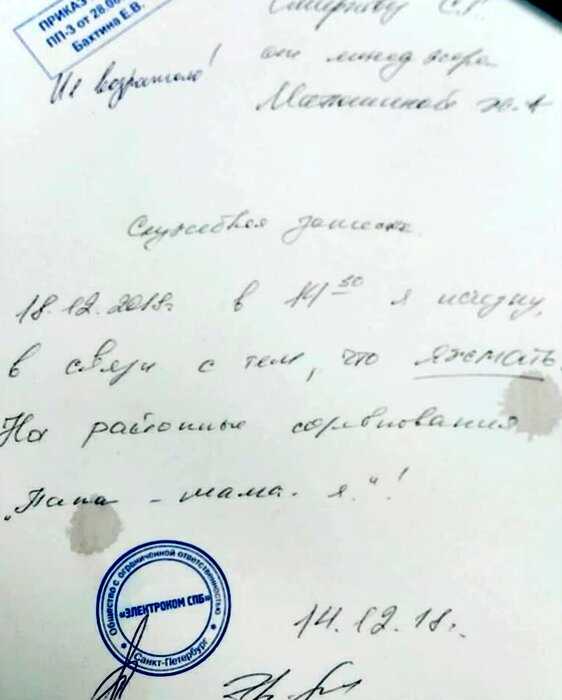 ПРИКАЗ
ПП-3 от 28.06
Бахтина Е.В.
Смирнову С.Г.
Не возражаю!
от менеджера
Матюшиной Ж.А
Служебная записка.
18.12.2018г в 14 30 я исчезну,
в связи с тем, что яжемать.
На районные соревнования
"Папа - мама - я."!
Общество с ограниченной ответственностью
«ЭЛЕКТРОКОМ СПБ»
Санкт-Петербург
14.12.18г.